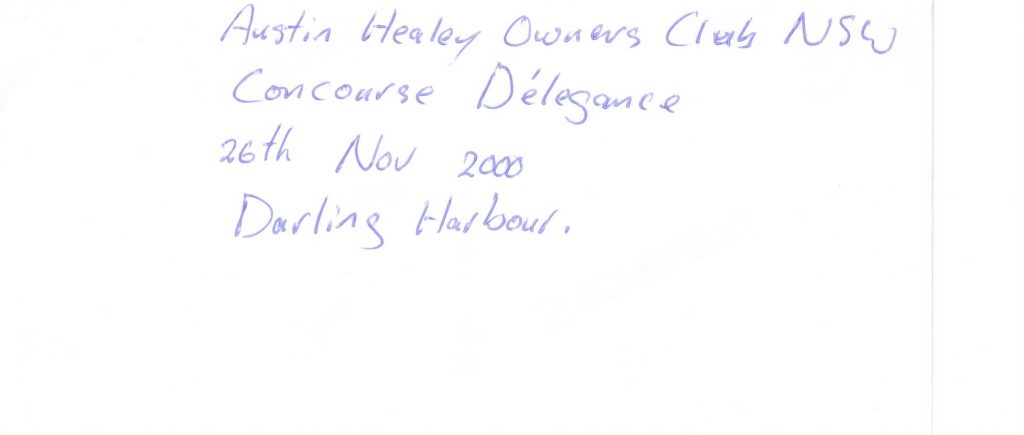 Austin Healey Owners Club NSW
Concourse Délegance
26th Nov 2000
Darling Harbour.